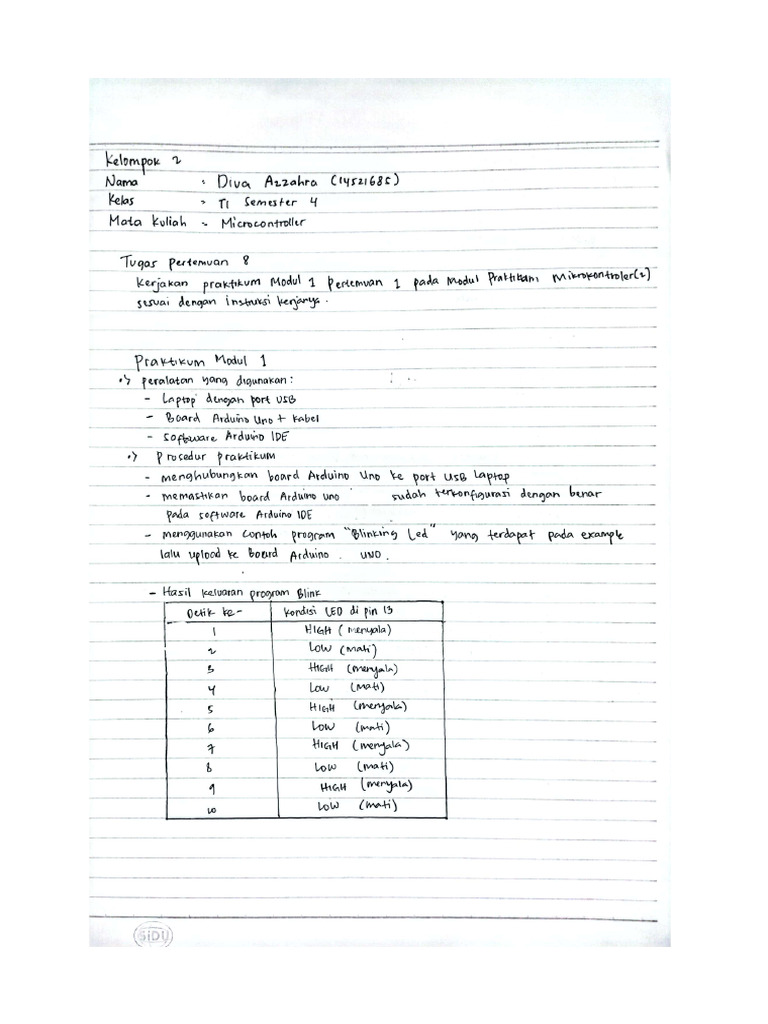 Kelompok 2
Nama : Diva Azzahra (14521685)
Kelas : TI Semester 4
Mata Kuliah : Microcontroller
Tugas pertemuan 8
Kerjakan praktikum Modul 1 Pertemuan 1 pada Modul Praktikum Mikrokontroler(2)
sesuai dengan instruksi kerjanya.
Praktikum Modul 1
•> peralatan yang digunakan:
- Laptop dengan port USB
- Board Arduino Uno + Kabel
- Software Arduino IDE
•> Prosedur praktikum
- menghubungkan board Arduino Uno ke port USB Laptop
- memastikan board Arduino uno sudah terkonfigurasi dengan benar
pada software Arduino IDE
- menggunakan contoh program "Blinking Led" yang terdapat pada example
lalu upload ke Board Arduino UNO.
- Hasil keluaran program Blink
Detik ke- Kondisi LED di pin 13
1 HIGH (menyala)
2 LOW (mati)
3 HIGH (menyala)
4 LOW (mati)
5 HIGH (menyala)
6 LOW (mati)
7 HIGH (menyala)
8 LOW (mati)
9 HIGH (menyala)
10 LOW (mati)
SiDU